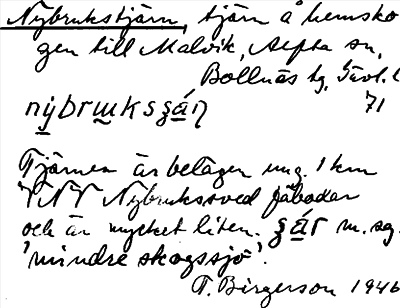 Nybrukstjärn, tjärn å hemsko-
gen till Malvik, Alfta sn,
Bollnäs tg, Gävl. l
nybruksʒáɳ 71
Tjärnen är belägen ung. 1 km
VNV Nybrukssved fäbodar
och är mycket liten. ʒár m. sg.
'mindre skogssjö'.
T. Birgerson 1946